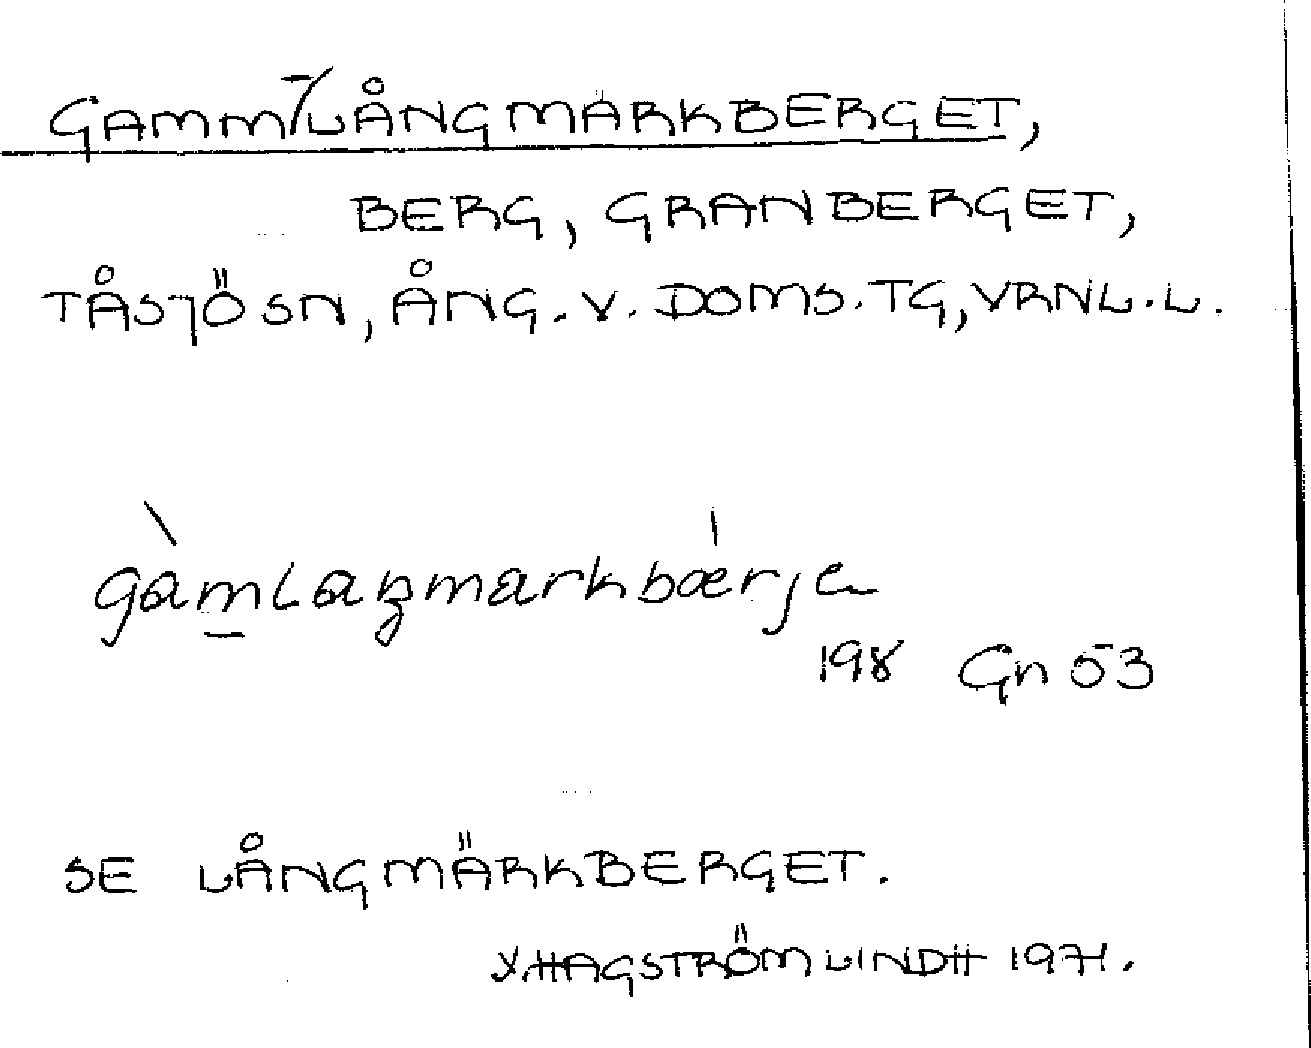 GAMM-/LÅNGMÄRKBERGET,
BERG, GRANBERGET,
TÅSJÖ SN, ÅNG. V. DOMS. TG, VRNL. L.
gàmlaŋmarkbærje
198 Gn 53
SE LÅNGMÄRKBERGET.
Y. HAGSTRÖM LINDH 1971.